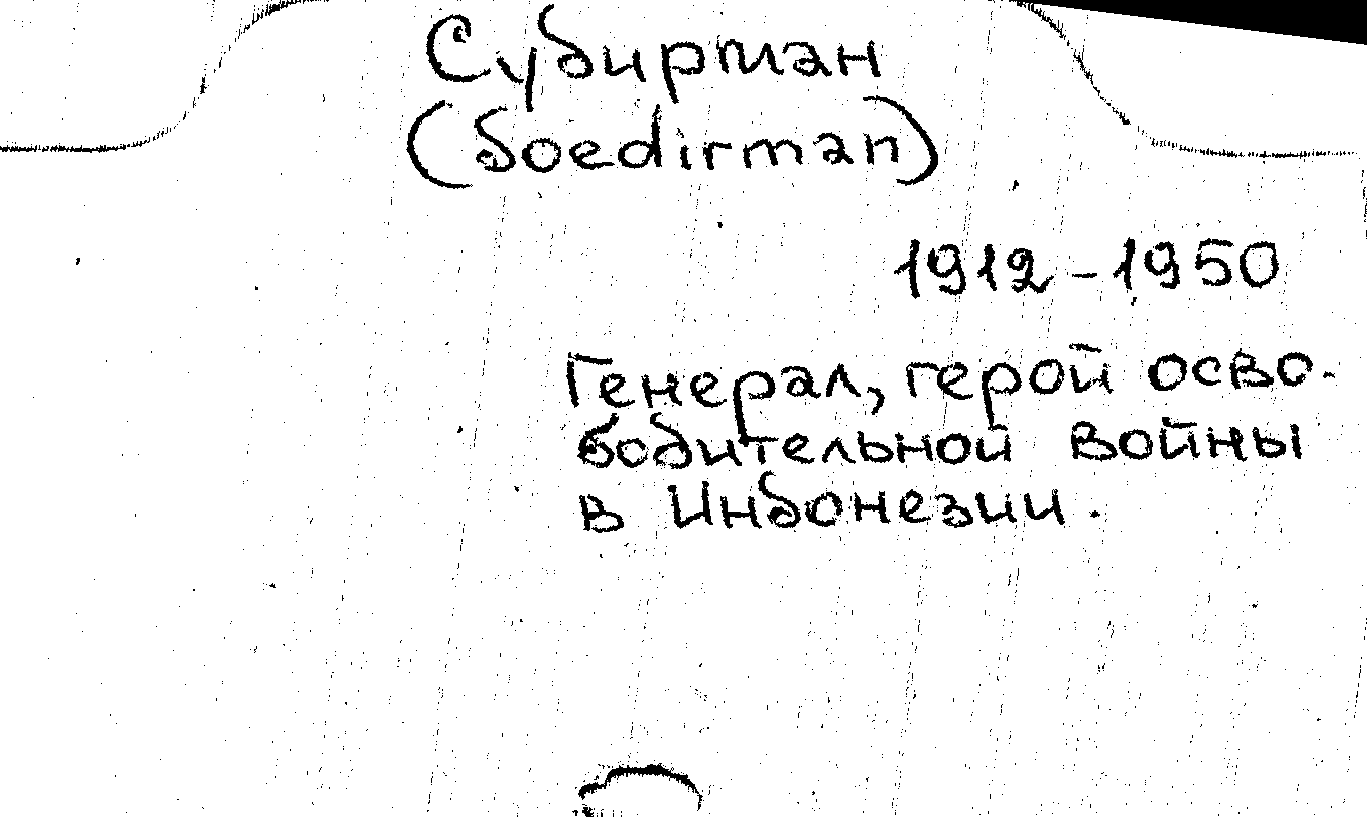 Судирман
(Soedirman)
1912-1950
Генерал, герой осво-
бодительной войны
в Индонезии.